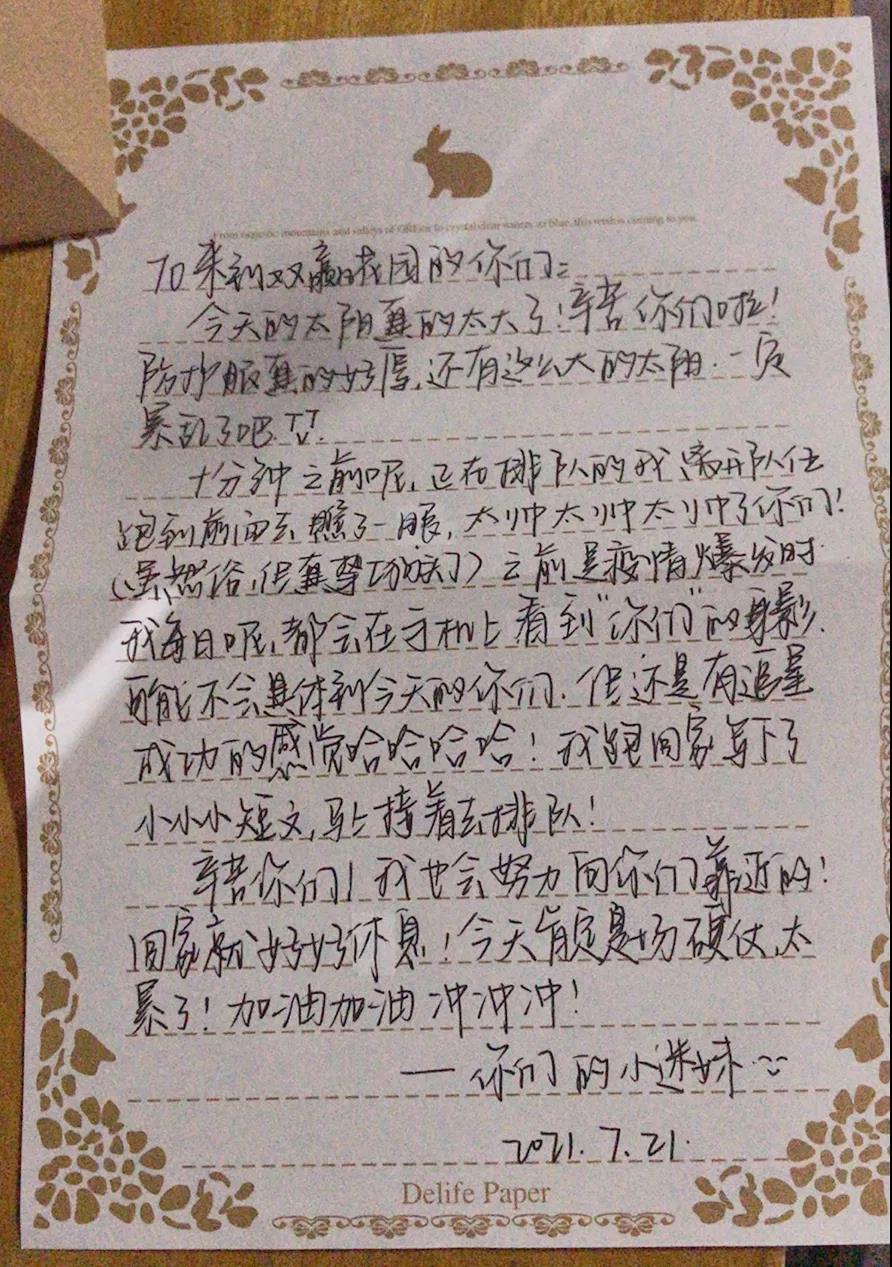 From majestic mountains and valleys of green to crystal clear waters so blue, this wish is coming to you.
TO 来到双赢花园的你们:
今天的太阳真的太大了!辛苦你们啦!
防护服真的好厚,还有这么大的太阳.一定
累乱了吧.TT.
十分钟之前呢,正在排队的我离开队伍
跑到前面去瞧了一眼,太帅太帅太帅了你们!
(虽然俗,但真挚功夫了)之前是疫情爆发时
我每日呢,都会在手机上看到"你们"的身影.
可能不会具体到今天的你们.但还是有追星
成功的感觉哈哈哈哈!我跑回家写下了
小小小短文,马上接着去排队!
辛苦你们!我也会努力向你们靠近的!
回家就好好休息!今天肯定是场硬仗,太
累了!加油加油 冲冲冲!
— 你们的小迷妹
2021.7.21.
Delife Paper